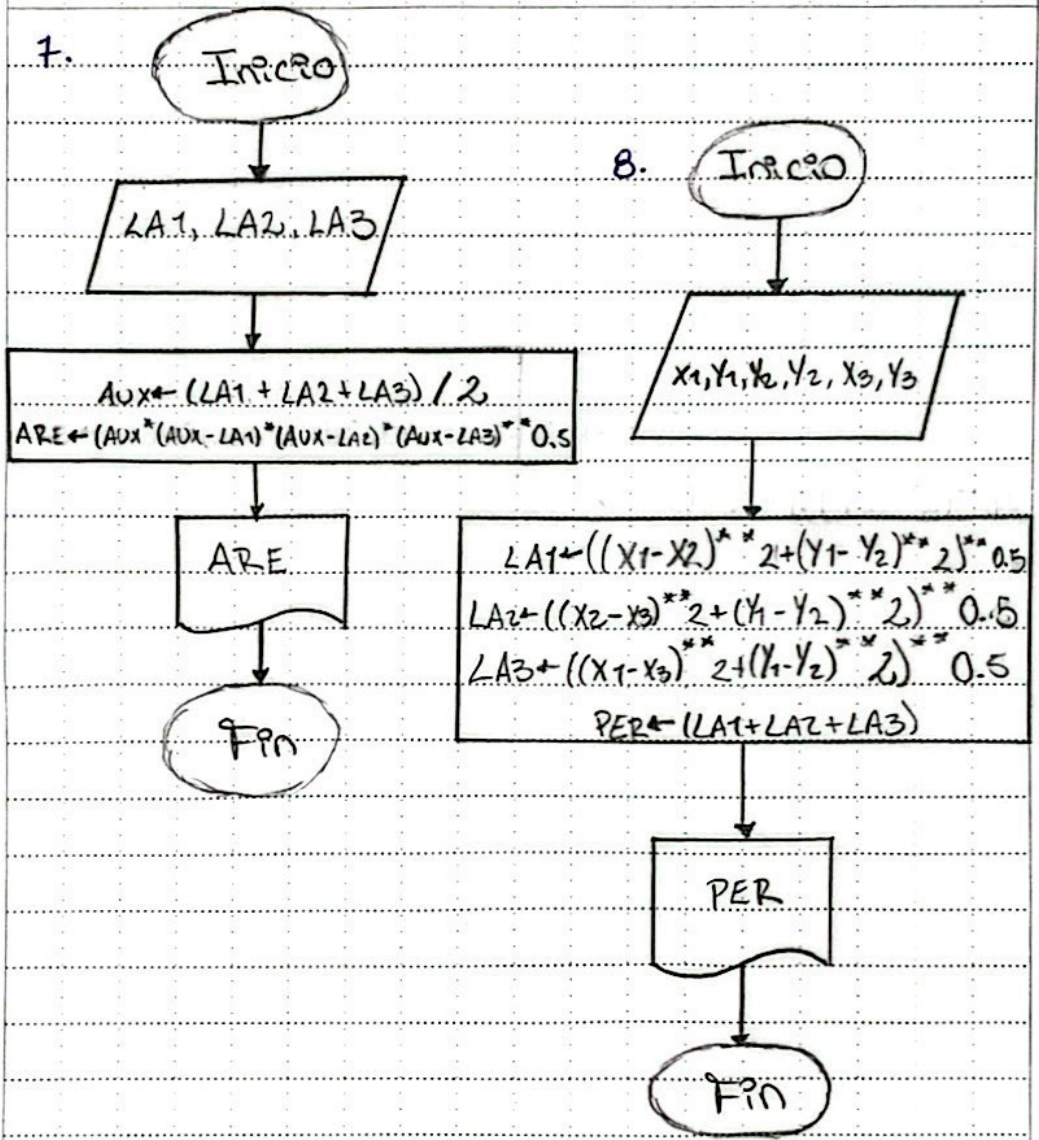 7.
Inicio
LA1, LA2, LA3
AUX← (LA1 + LA2+LA3) / 2
ARE← (AUX*(AUX-LA1)*(AUX-LA2)*(AUX-LA3)**0.5
ARE
Fin
8.
Inicio
X1,Y1,Y2,Y2,X3,Y3
LA1←((X1-X2)**2+(Y1-Y2)**2)**0.5
LA2←((X2-X3)**2+(Y1-Y2)**2)**0.5
LA3←((X1-X3)**2+(Y1-Y2)**2)**0.5
PER←(LA1+LA2+LA3)
PER
Fin